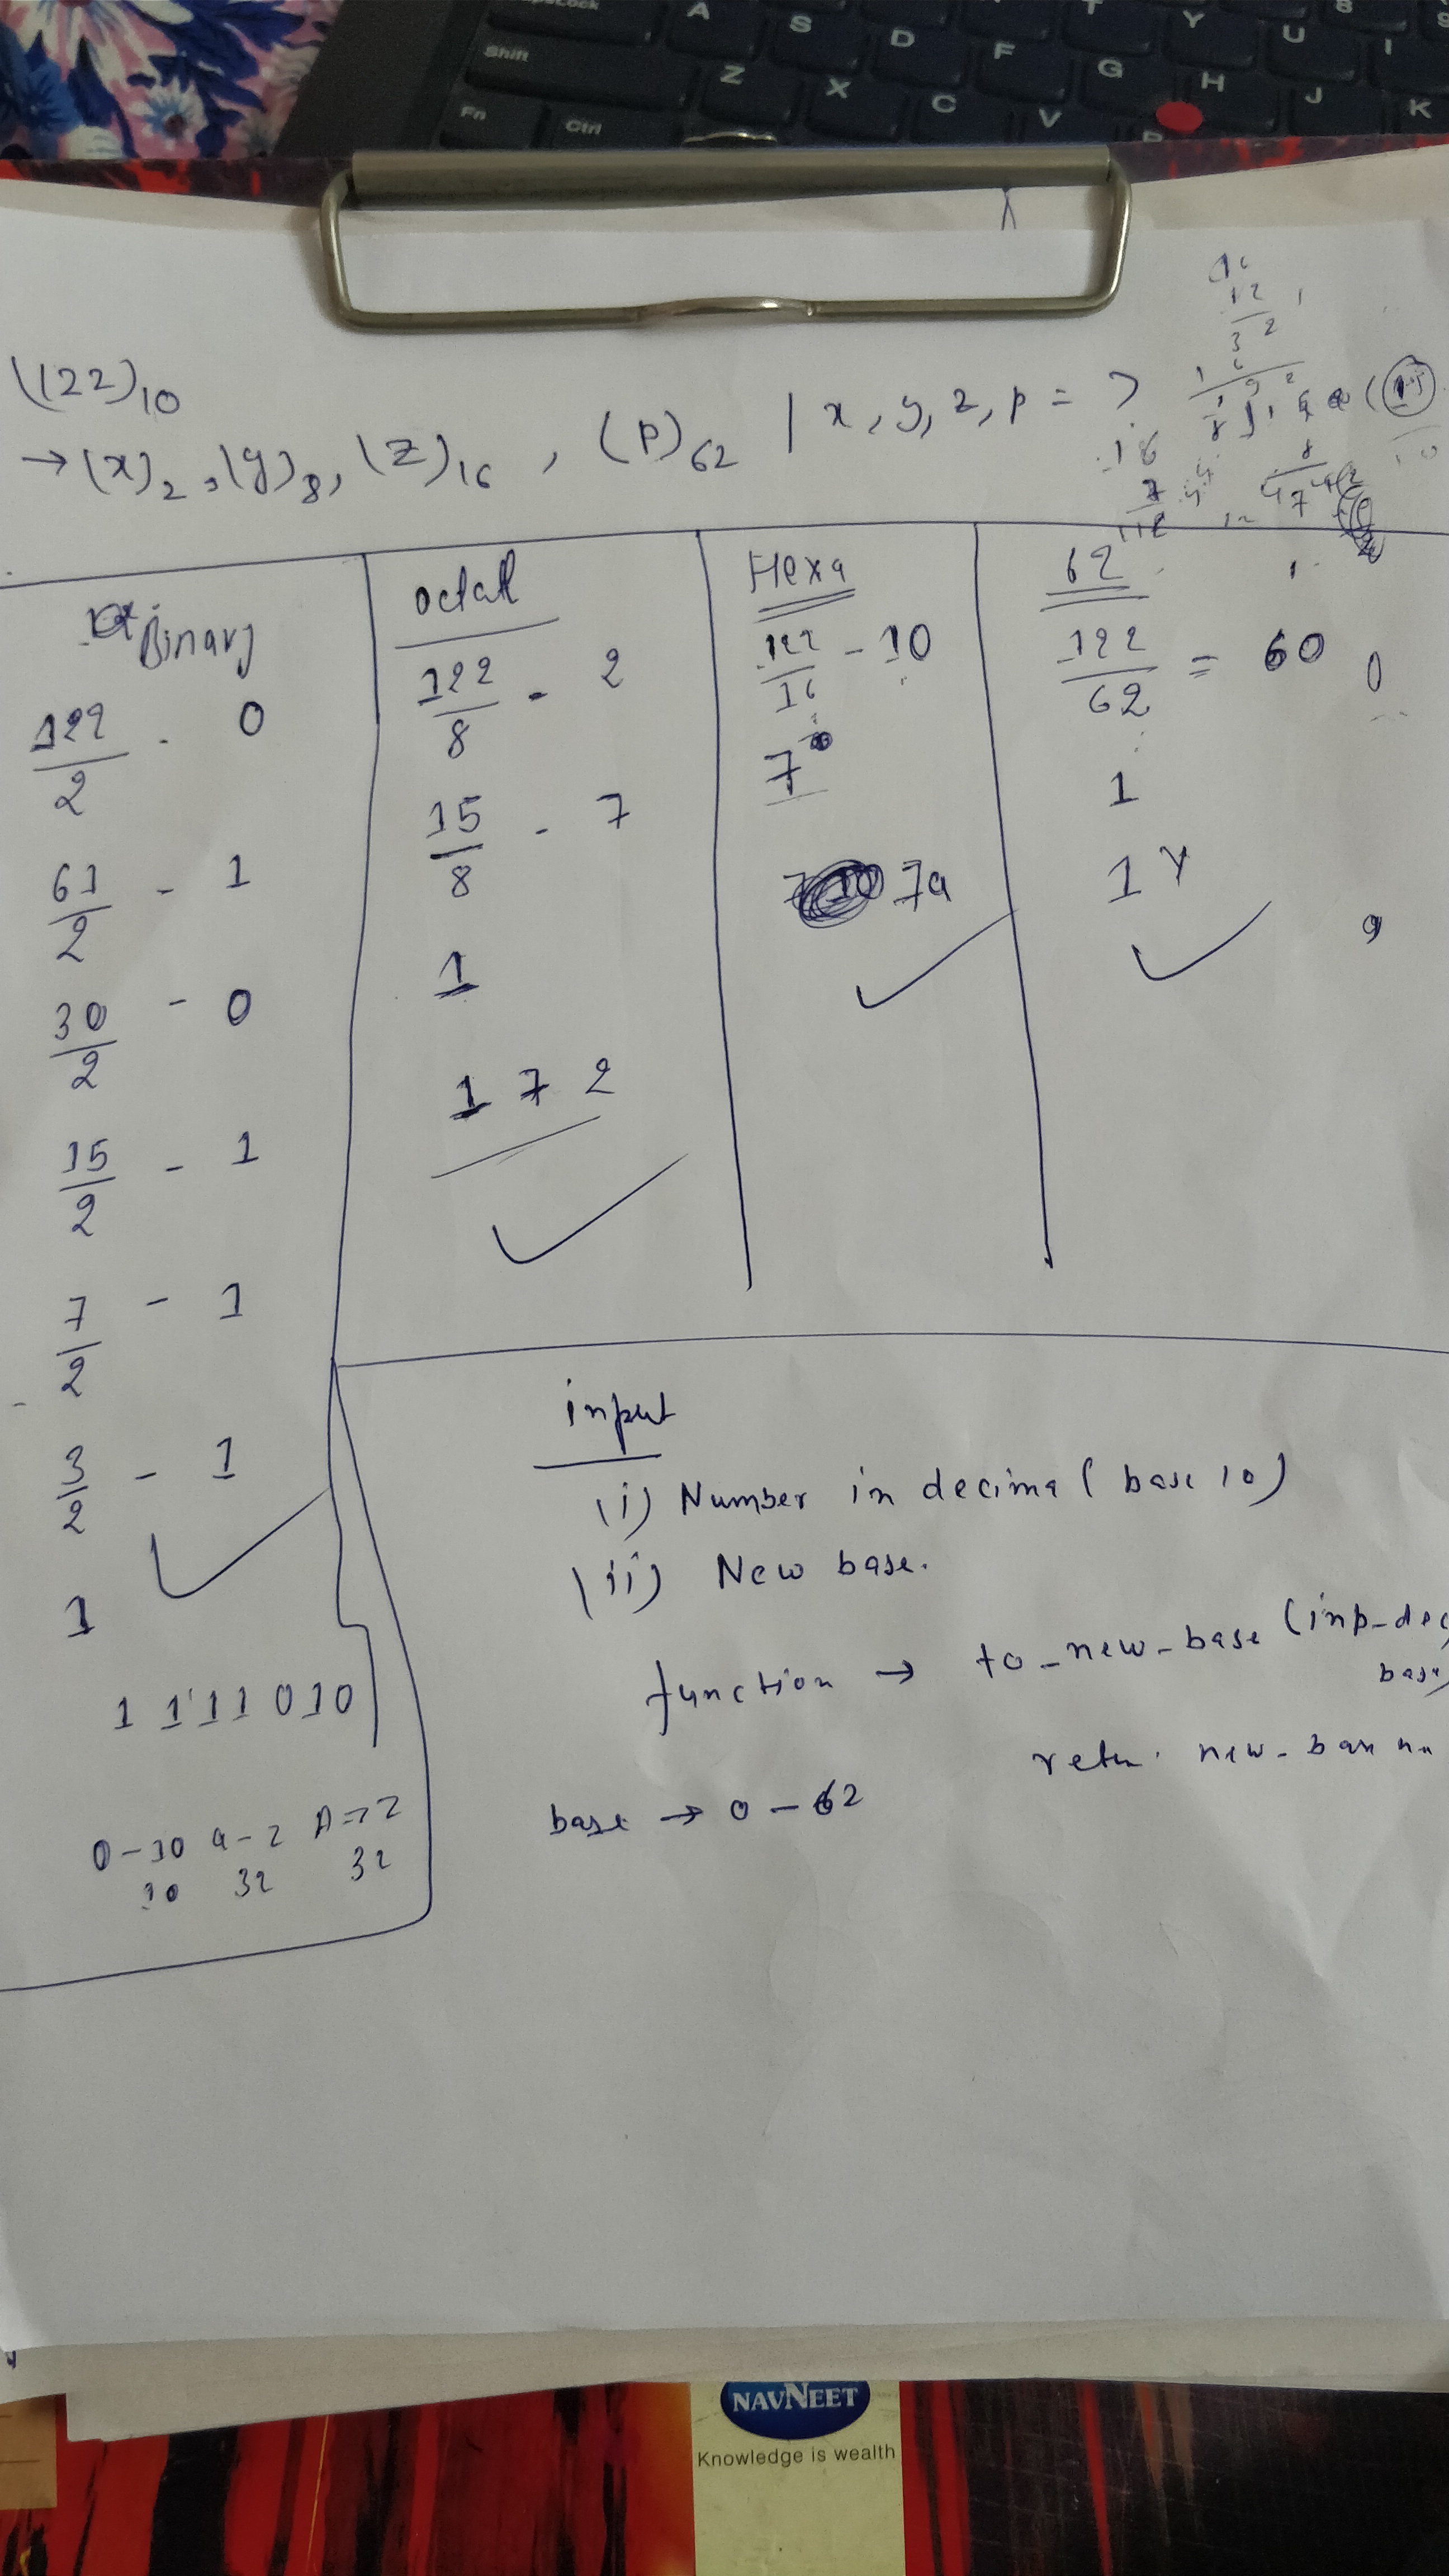 Shift
A S D F G H J K
Z X C V
T Y U I
Fn Ctrl
(122)10
→ (x)2, (y)8, (z)16, (p)62 | x, y, z, p = ?
16
Binary
122/2 - 0
61/2 - 1
30/2 - 0
15/2 - 1
7/2 - 1
3/2 - 1
1
1 1 1 1 0 1 0
0-10 a-z A=>Z
10 32 32
octal
122/8 - 2
15/8 - 7
1
1 7 2
Hexa
122/16 - 10
7
7a
62
122/62 = 60
1
1Y
input
(i) Number in decima( base 10)
(ii) New base.
function → to_new_base (inp_dec
base)
retu. new_bas
base → 0 - 62
NAVNEET
Knowledge is wealth